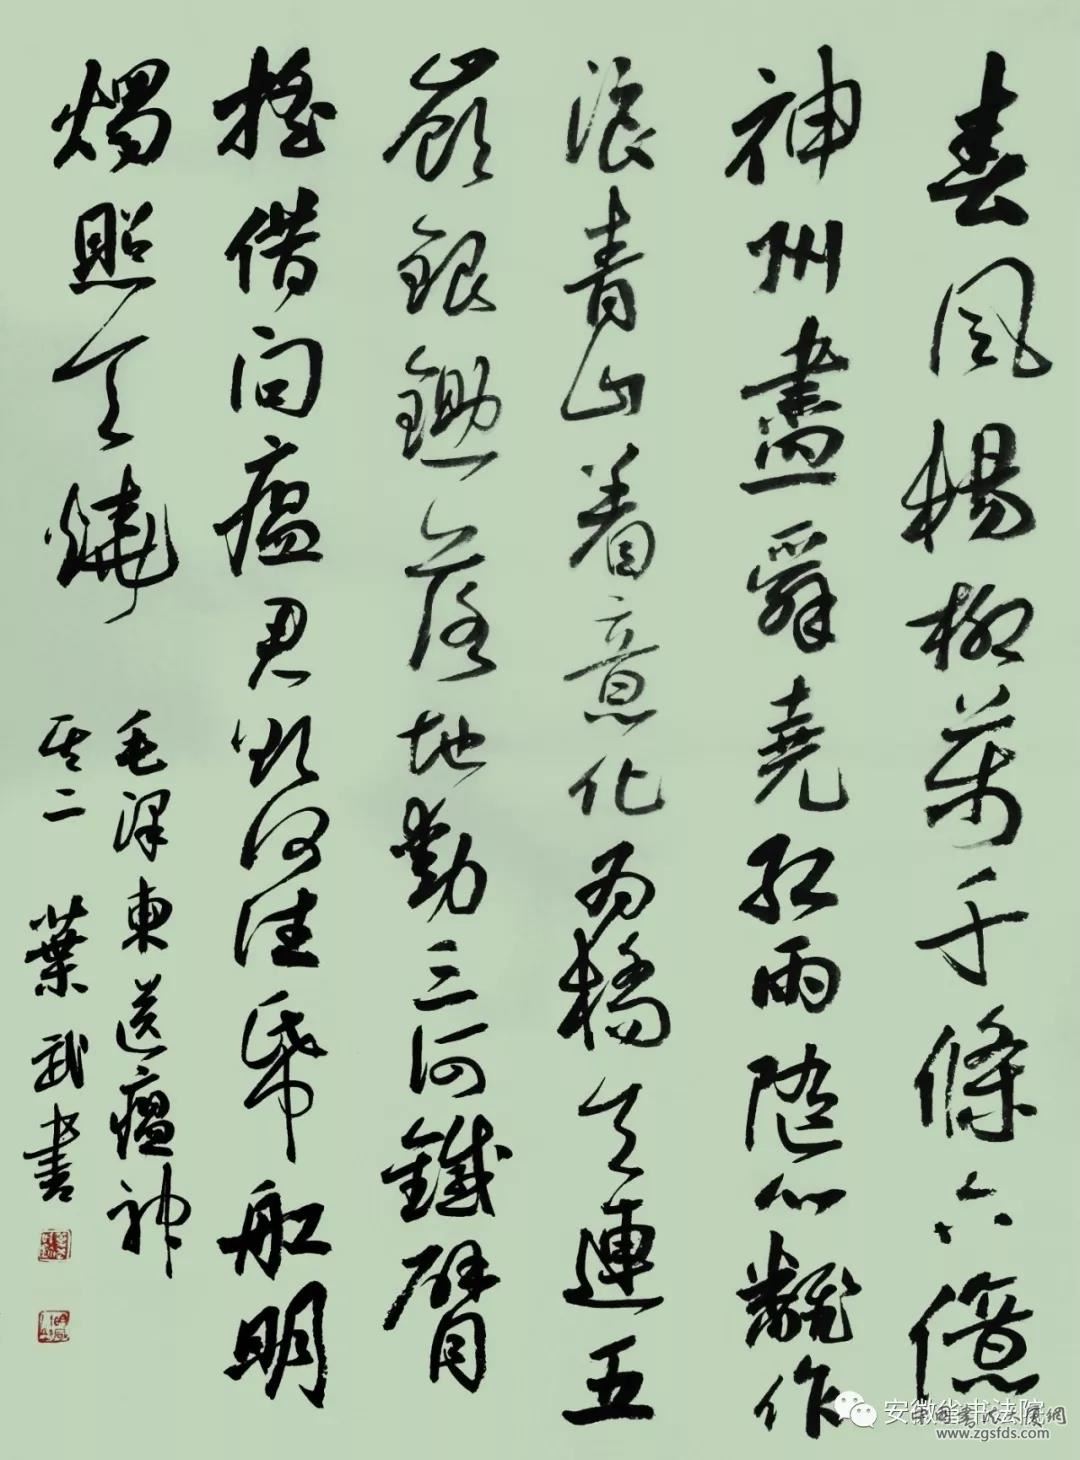 春風楊柳萬千條六億
神州盡舜堯紅雨隨心飜作
浪青山着意化為橋天連五
嶺銀鋤落地動三河鐵臂
搖借問瘟君欲何往帋舡明
燭照天燒
毛澤東送瘟神
其二 葉武書
安徽省书法院
www.zgsfds.com